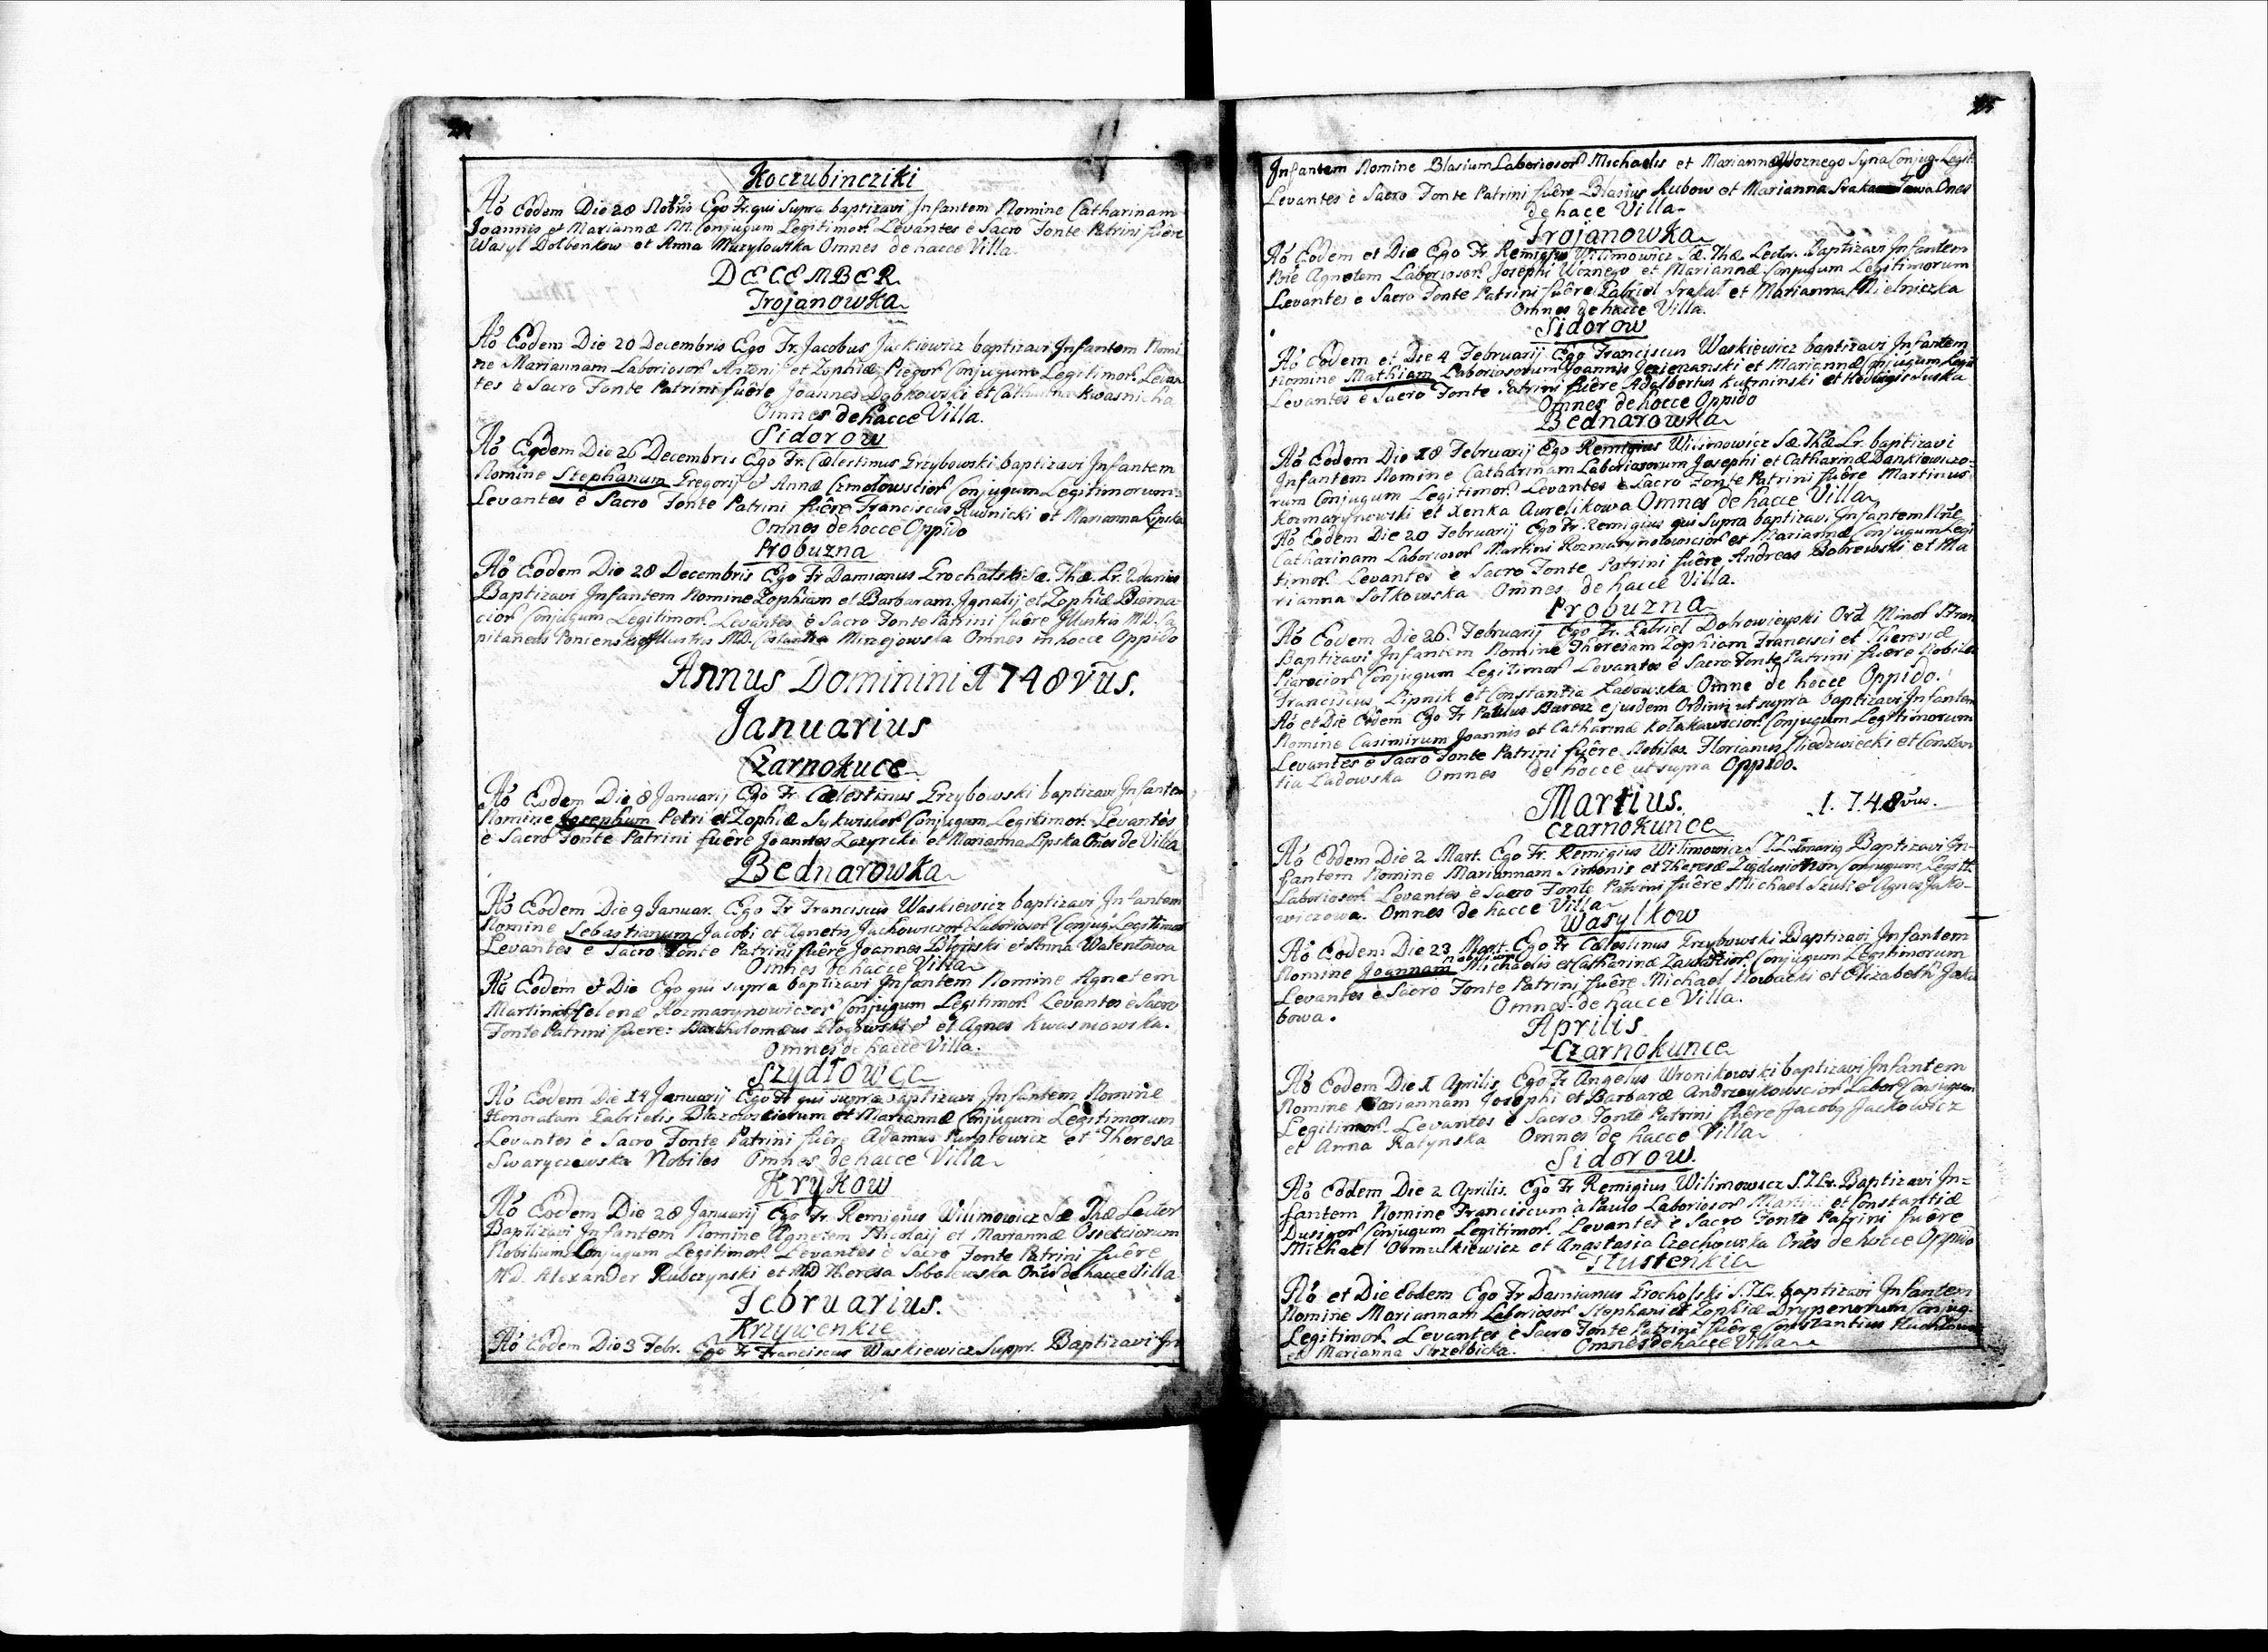 24
Koczubincziki
Ao Eodem Die 28 Nobris Ego Fr. qui Supra baptizavi Infantem Nomine Catharinam
Joannis et Mariannæ NN. Conjugum Legitimor. Levantes è Sacro Fonte Patrini fuêre
Wasyl Dolbenkow et Anna Muzylowska Omnes de hacce Villa.
DECEMBER
Trojanowka
Ao Eodem Die 20 Decembris Ego Fr. Jacobus Jackiewicz baptizavi Infantem Nomi
ne Mariannam Laboriosor. Antoni et Zophiæ Piegor Conjugum Legitimor. Levan
tes è Sacro Fonte Patrini fuêre Joannes Dobkowski et Catharina Kwasnicha
Omnes de hacce Villa.
Sidorow
Ao Eodem Die 26 Decembris Ego Fr. Cælestinus Grzybowski baptizavi Infantem
Nomine Stephanum Gregorij et Annæ Czmolowscior Conjugum Legitimorum
Levantes è Sacro Fonte Patrini fuêre Franciscus Rudnicki et Marianna Lipska
Omnes de hocce Oppido
Probuzna
Ao Eodem Die 28 Decembris Ego Fr Damianus Grochalski Sæ. Thæ. Lr.
Baptizavi Infantem Nomine Zophiam et Barbaram Ignatij et Zophiæ Bierna
cior Conjugum Legitimor. Levantes è Sacro Fonte Patrini fuêre Illustris MD. Ca
pitaneus Illustris MD. Minejowska Omnes in hocce Oppido
Annus Dominini 1748vus.
Januarius
Czarnokuce
Ao Eodem Die 8 Januarij Ego Fr. Cælestinus Grzybowski baptizavi Infantem
Nomine Josephum Petri et Zophiæ Conjugum Legitimor. Levantes
è Sacro Fonte Patrini fuêre Joannes Zazyrcki et Marianna Lipska Ones de Villa
Bednarowka
Ao Eodem Die 9 Januar. Ego Fr Franciscus Waskiewicz baptizavi Infantem
Nomine Sebastianum Jacobi et Agnetis Juchowscior Laboriosor Conjug. Legitimor
Levantes è Sacro Fonte Patrini fuêre Joannes et Anna Walentowa
Omnes de hacce Villa
Ao Eodem et Die Ego qui supra baptizavi Infantem Nomine Agnetem
Martini et Helenæ Rozmarynowiczor Conjugum Legitimor. Levantes è Sacro
Fonte Patrini fuere: Bartholomæus Glogowski et Agnes Kwasniowska.
Omnes de hacce Villa.
Szydlowce
Ao Eodem Die 14 Januarij Ego Fr qui supra baptizavi Infantem Nomine
Honoratam Gabrielis et Mariannæ Conjugum Legitimorum
Levantes è Sacro Fonte Patrini fuêre Adamus et Theresa
Swaryczewska Nobiles Omnes de hacce Villa
Krykow
Ao Eodem Die 28 Januarij Ego Fr. Remigius Wilimowicz Sæ Thæ Lector
Baptizavi Infantem Nomine Agnetem Nicolaij et Mariannæ Osieciorum
Nobilium Conjugum Legitimor. Levantes è Sacro Fonte Patrini fuêre
MD. Alexander Rubczynski et MD Theresa Sobolewska Ones de hacce Villa
Februarius.
Krzywenkie
Ao Eodem Die 3 Febr. Ego Fr Franciscus Waskiewicz Suppr. Baptizavi In
25
Infantem Nomine Blasium Laboriosor Michaelis et Mariannæ Woznego Syna Conjug. Legit.
Levantes è Sacro Fonte Patrini fuêre Blasius Kubow et Marianna Ones
de hacce Villa
Trojanowka
Ao Eodem et Die Ego Fr. Remigius Wilimowicz Sæ. Thæ. Lector. Baptizavi Infantem
Noie Agnetem Laboriosor. Josephi Woznego et Mariannæ Conjugum Legitimorum
Levantes è Sacro Fonte Patrini fuêre Gabriel Srakal et Marianna Mielniczka
Omnes de hacce Villa.
Sidorow
Ao Eodem et Die 4 Februarij Ego Franciscus Waskiewicz baptizavi Infantem
Nomine Mathiam Laboriosorum Joannis Jezierzanski et Mariannæ Conjugum Legit
Levantes è Sacro Fonte Patrini fuêre Adalbertus Kutninski et Hedvigis Suska
Omnes de hocce Oppido
Bednarowka
Ao Eodem Die 18 Februarij Ego Remigius Wilimowicz Sæ. Thæ Lr. baptizavi
Infantem Nomine Catharinam Laboriosorum Josephi et Catharinæ Dankiewiczo=
rum Conjugum Legitimor. Levantes è Sacro Fonte Patrini fuêre Martinus
Rozmarynowski et Xenka Aurelikowa Omnes de hacce Villa
Ao Eodem Die 20 Februarij Ego Fr. Remigius qui Supra baptizavi Infantem Nne
Catharinam Laboriosor Martini Rozmarynolowscior et Mariannæ Conjugum Legi
timor. Levantes è Sacro Fonte Patrini fuêre Andreas Bobrewski et Ma
rianna Solkowska Omnes de hacce Villa.
Probuzna
Ao Eodem Die 26. Februarij Ego Fr. Gabriel Dobrowieyski Ord. Minor Stran
Baptizavi Infantem Nomine Theresam Zophiam Francisci et Theresiæ
Piarocior Conjugum Legitimor Levantes è Sacro Fonte Patrini fuêre Nobiles
Franciscus Lipnik et Constantia Ladowska Omne de hocce Oppido.
Ao et Die Eodem Ego Fr Paulus Baroz ejusdem Ordinis ut supra baptizavi Infantem
Nomine Casimirum Joannis et Catharinæ Kolakawscior. Conjugum Legitimorum
Levantes è Sacro Fonte Patrini fuêre Nobiles Florianus Niedzwiecki et Constan
tia Ladowska Omnes de hocce ut supra Oppido.
Martius. 1.748vus.
Czarnokunce
Ao Eodem Die 2 Mart. Ego Fr. Remigius Wilimowicz Baptizavi In-
fantem Nomine Mariannam Simonis et Theresiæ Conjugum Legitt.
Laboriosor. Levantes è Sacro Fonte Patrini fuêre Michael Szulc et Agnes Jako-
wiczowa. Omnes de hacce Villa
Wasylkow
Ao Eodem Die 23 Mart. Ego Fr Cælestinus Grzybowski Baptizavi Infantem
Nomine Joannam Nobilium Michaelis et Catharinæ Conjugum Legitimorum
Levantes è Sacro Fonte Patrini fuêre Michael Nowacki et Elizabeth Jaku
bowa. Omnes de hacce Villa.
Aprilis
Czarnokunce
Ao Eodem Die 1 Aprilis Ego Fr Angelus Wronikowski baptizavi Infantem
Nomine Mariannam Josephi et Barbaræ Andrzeykowscior Labor. Conjugum
Legitimor. Levantes è Sacro Fonte Patrini fuêre Jacobg Jackowicz
et Anna Ratynska Omnes de hacce Villa
Sidorow.
Ao Eodem Die 2 Aprilis. Ego Fr Remigius Wilimowicz S.T.Lr. Baptizavi In=
fantem Nomine Franciscum à Paulo Laboriosor Martini et Constantiæ
Dusigor Conjugum Legitimor. Levantes è Sacro Fonte Patrini fuêre
Michael Osmulkiewicz et Anastasia Czechowska Ones de hocce Oppido
Tlustenkie
Ao et Die Eodem Ego Fr Damianus Grocholski S.T.Lr. baptizavi Infantem
Nomine Mariannam Laboriosor Stephani et Zophiæ Dryperorum Conjug.
Legitimor. Levantes è Sacro Fonte Patrini fuêre Constantius
et Marianna Strzelbicka. Omnes de hacce Villa